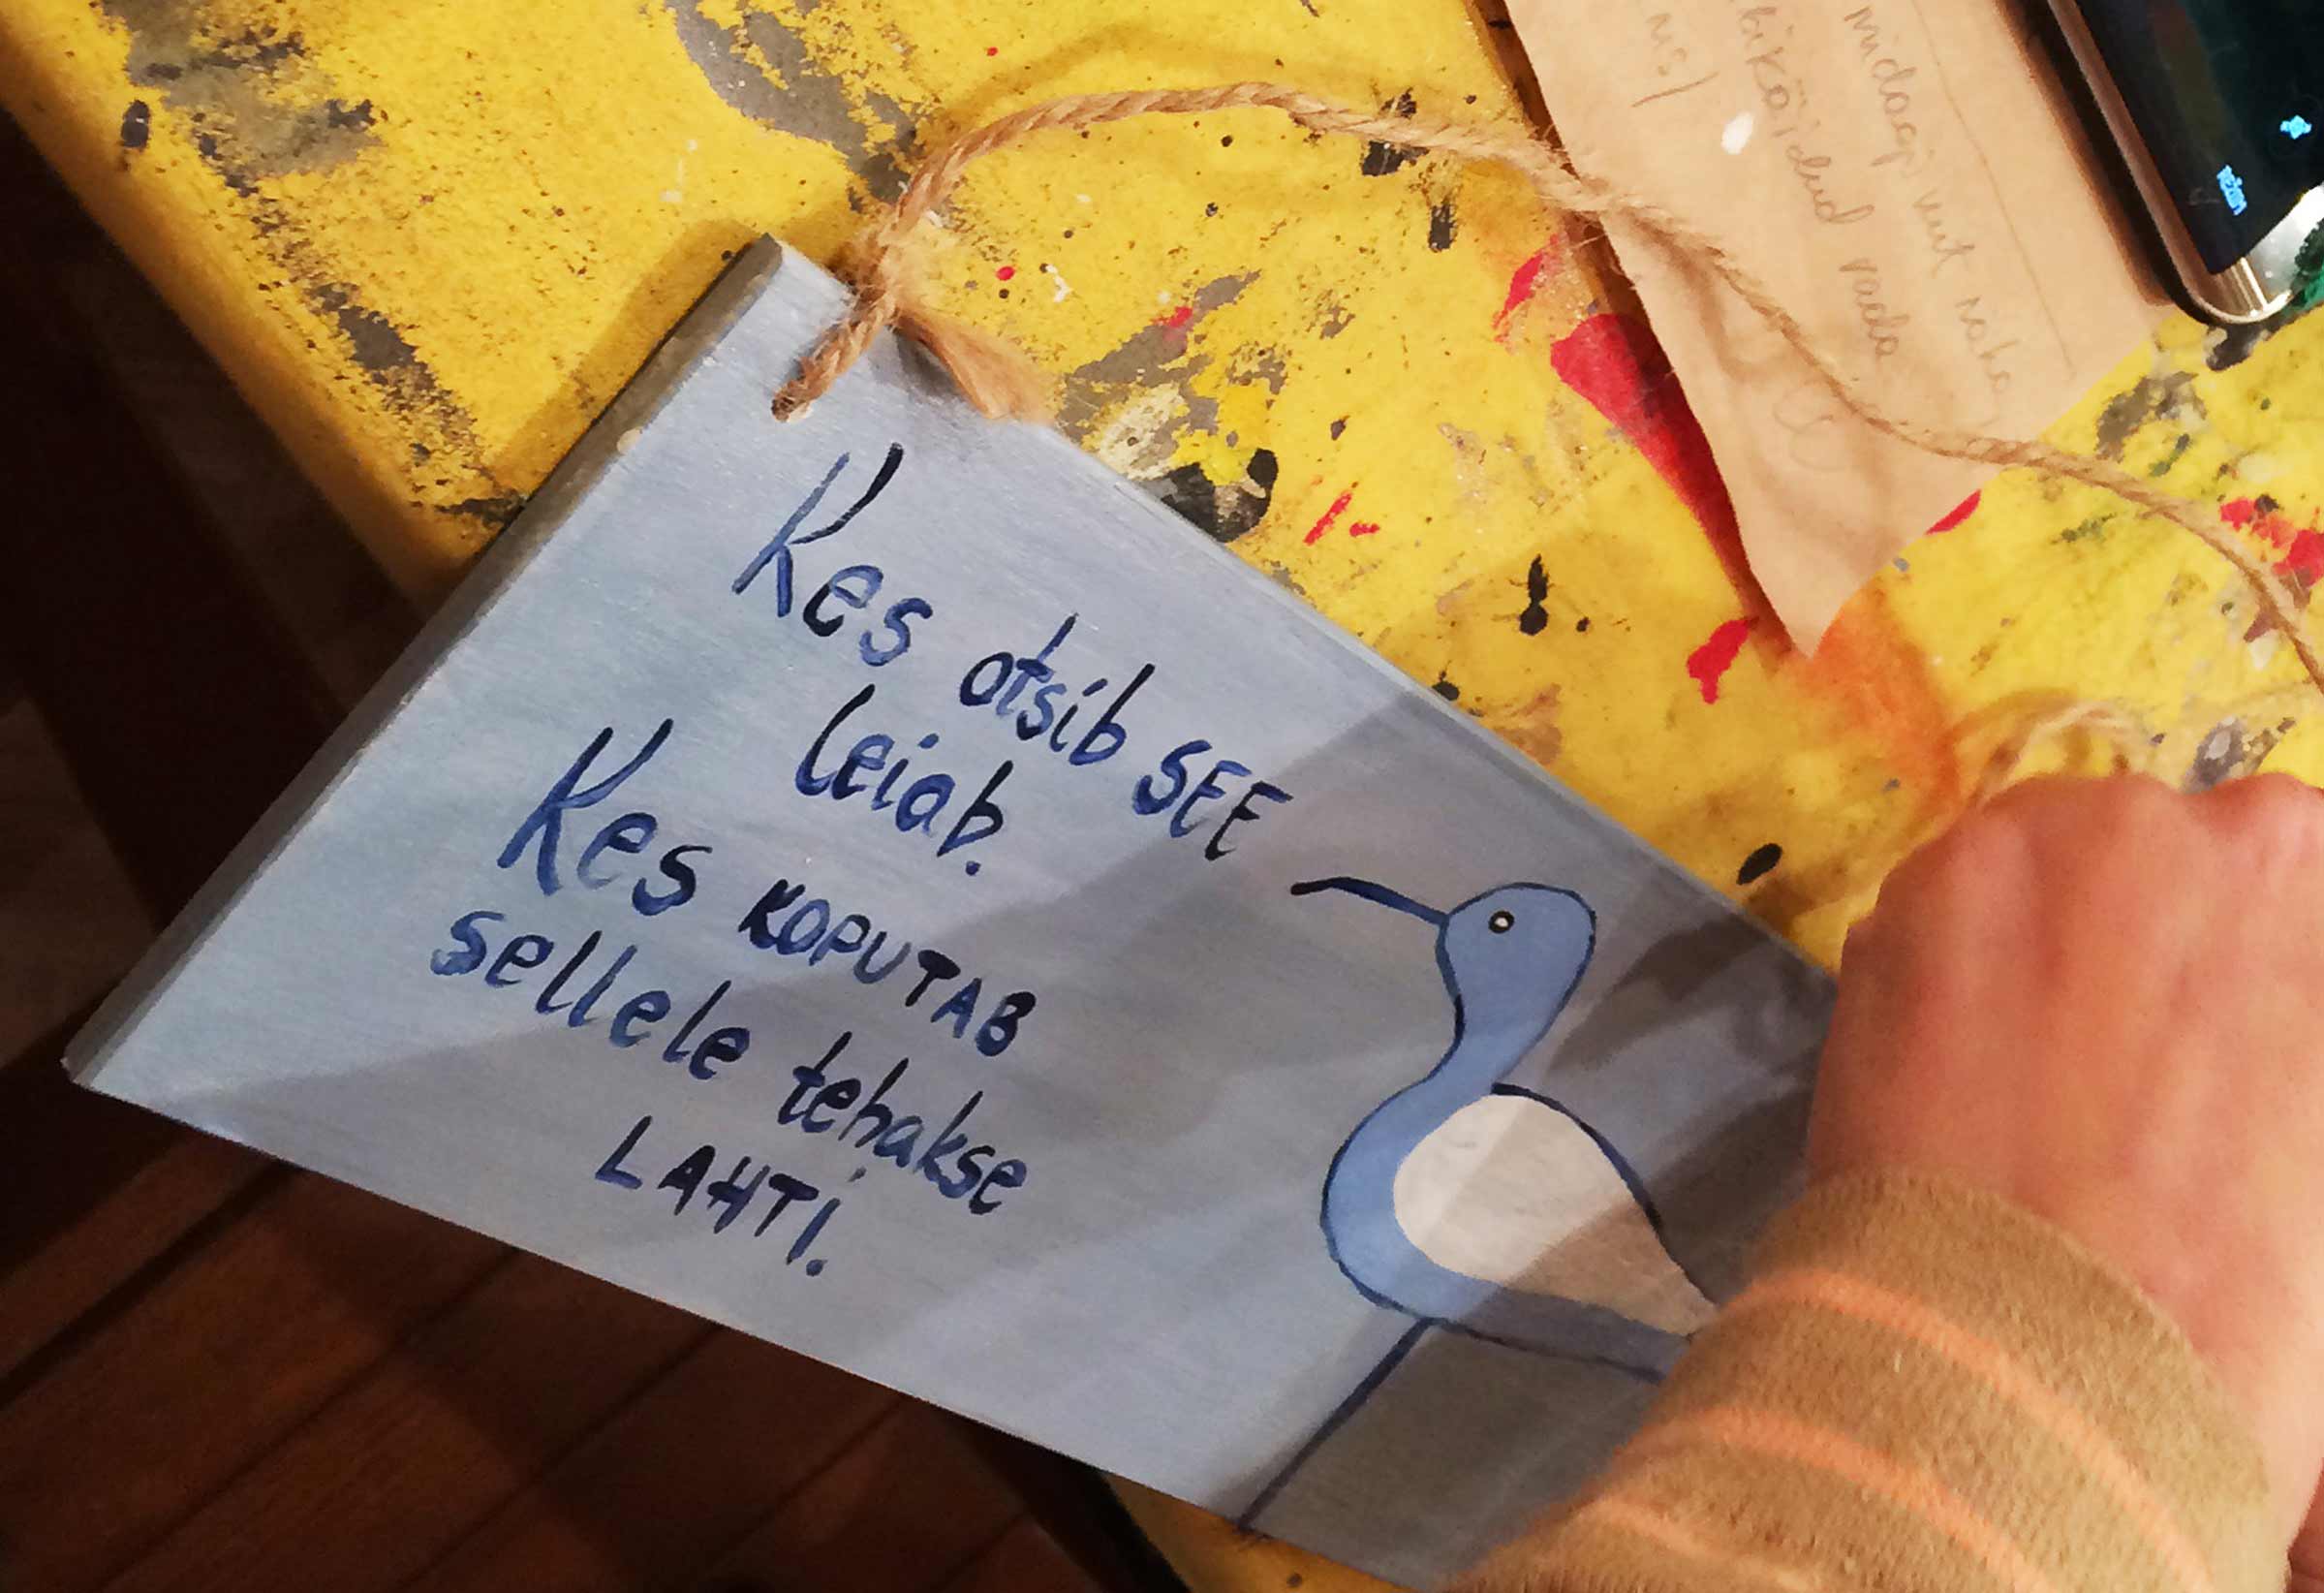 Kes otsib SEE
leiab.
Kes KOPUTAB
sellele tehakse
LAHTI.
midagi muud